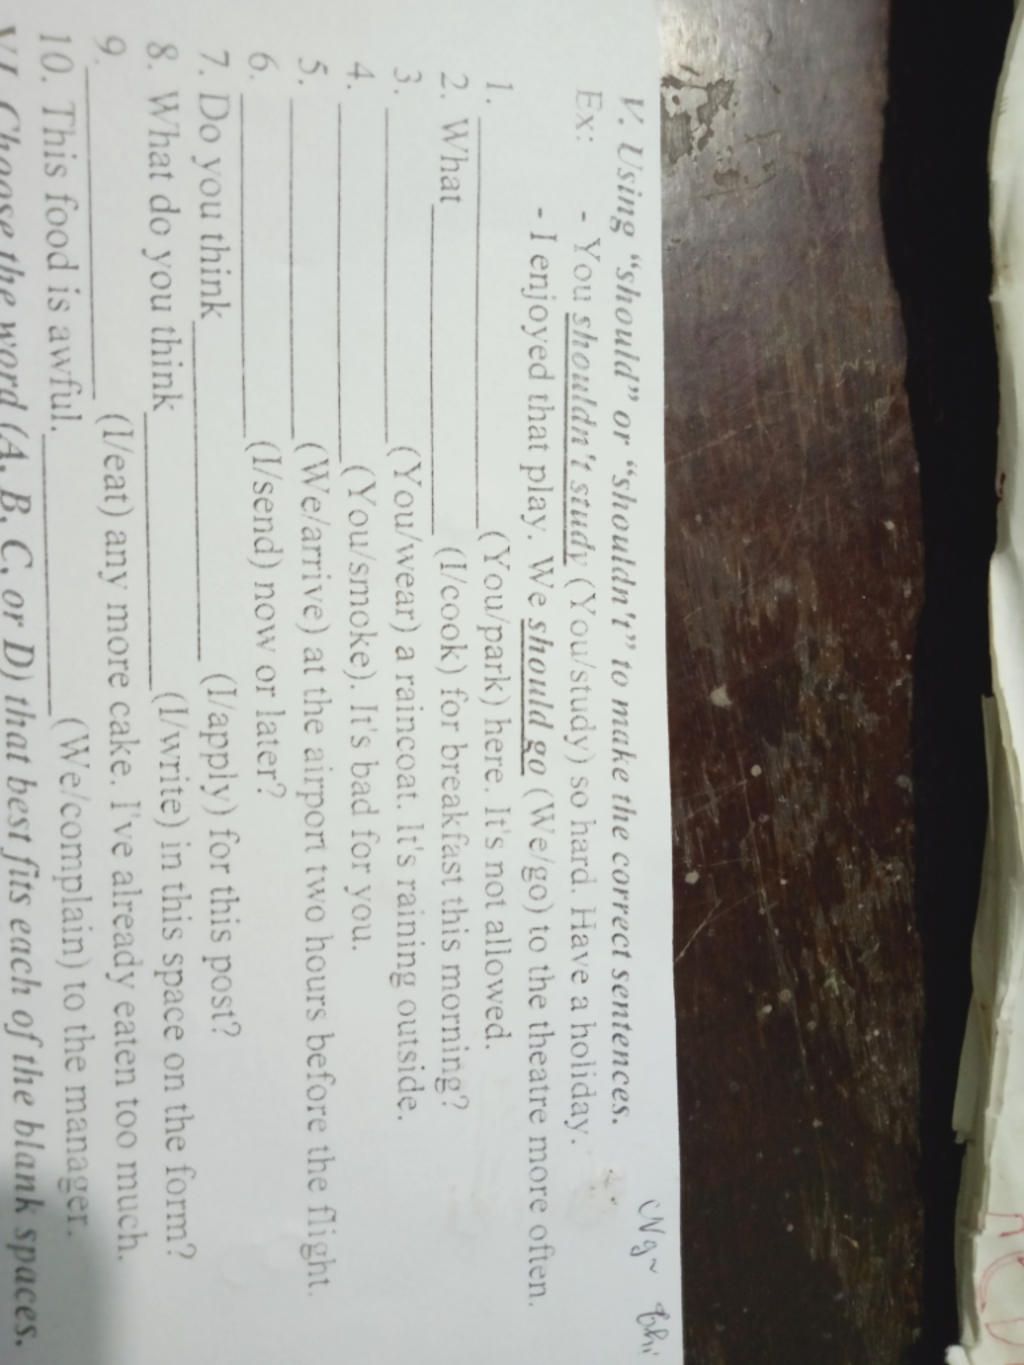 V. Using "should" or "shouldn't" to make the correct sentences.
Ex: - You shouldn't study (You/study) so hard. Have a holiday.
- I enjoyed that play. We should go (We/go) to the theatre more often.
1. ____________ (You/park) here. It's not allowed.
2. What ____________ (I/cook) for breakfast this morning?
3. ____________ (You/wear) a raincoat. It's raining outside.
4. ____________ (You/smoke). It's bad for you.
5. ____________ (We/arrive) at the airport two hours before the flight.
6. ____________ (I/send) now or later?
7. Do you think ____________ (I/apply) for this post?
8. What do you think ____________ (I/write) in this space on the form?
9. ____________ (I/eat) any more cake. I've already eaten too much.
10. This food is awful. ____________ (We/complain) to the manager.
VI. Choose the word (A, B, C, or D) that best fits each of the blank spaces.